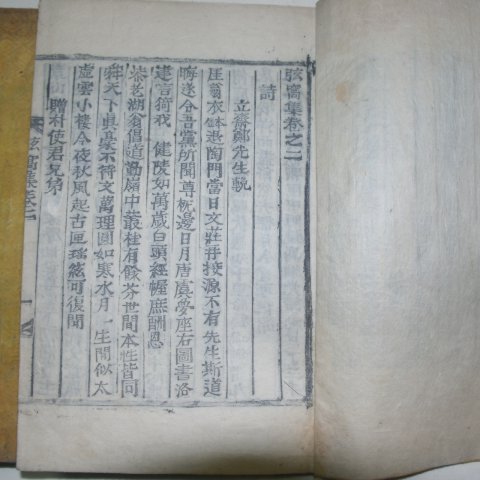 弦窩集卷之二
詩
立齋鄭先生輓
厓翁衣鉢退陶門當日文莊再授源不有先生斯道
晦遂令吾黨所聞尊枕邊日月唐虞夢座右圖書洛
建言猗我 健陵如萬歲白頭經幄庶酬恩
湖翁倡道中叢桂有餘芬世間本性皆同
舜天下眞豪不待文萬理圓如寒水月一生閒似太
虛雲小樓今夜秋風起古匣瑤絃可復聞
贈朴使君兄弟
弦窩集卷二